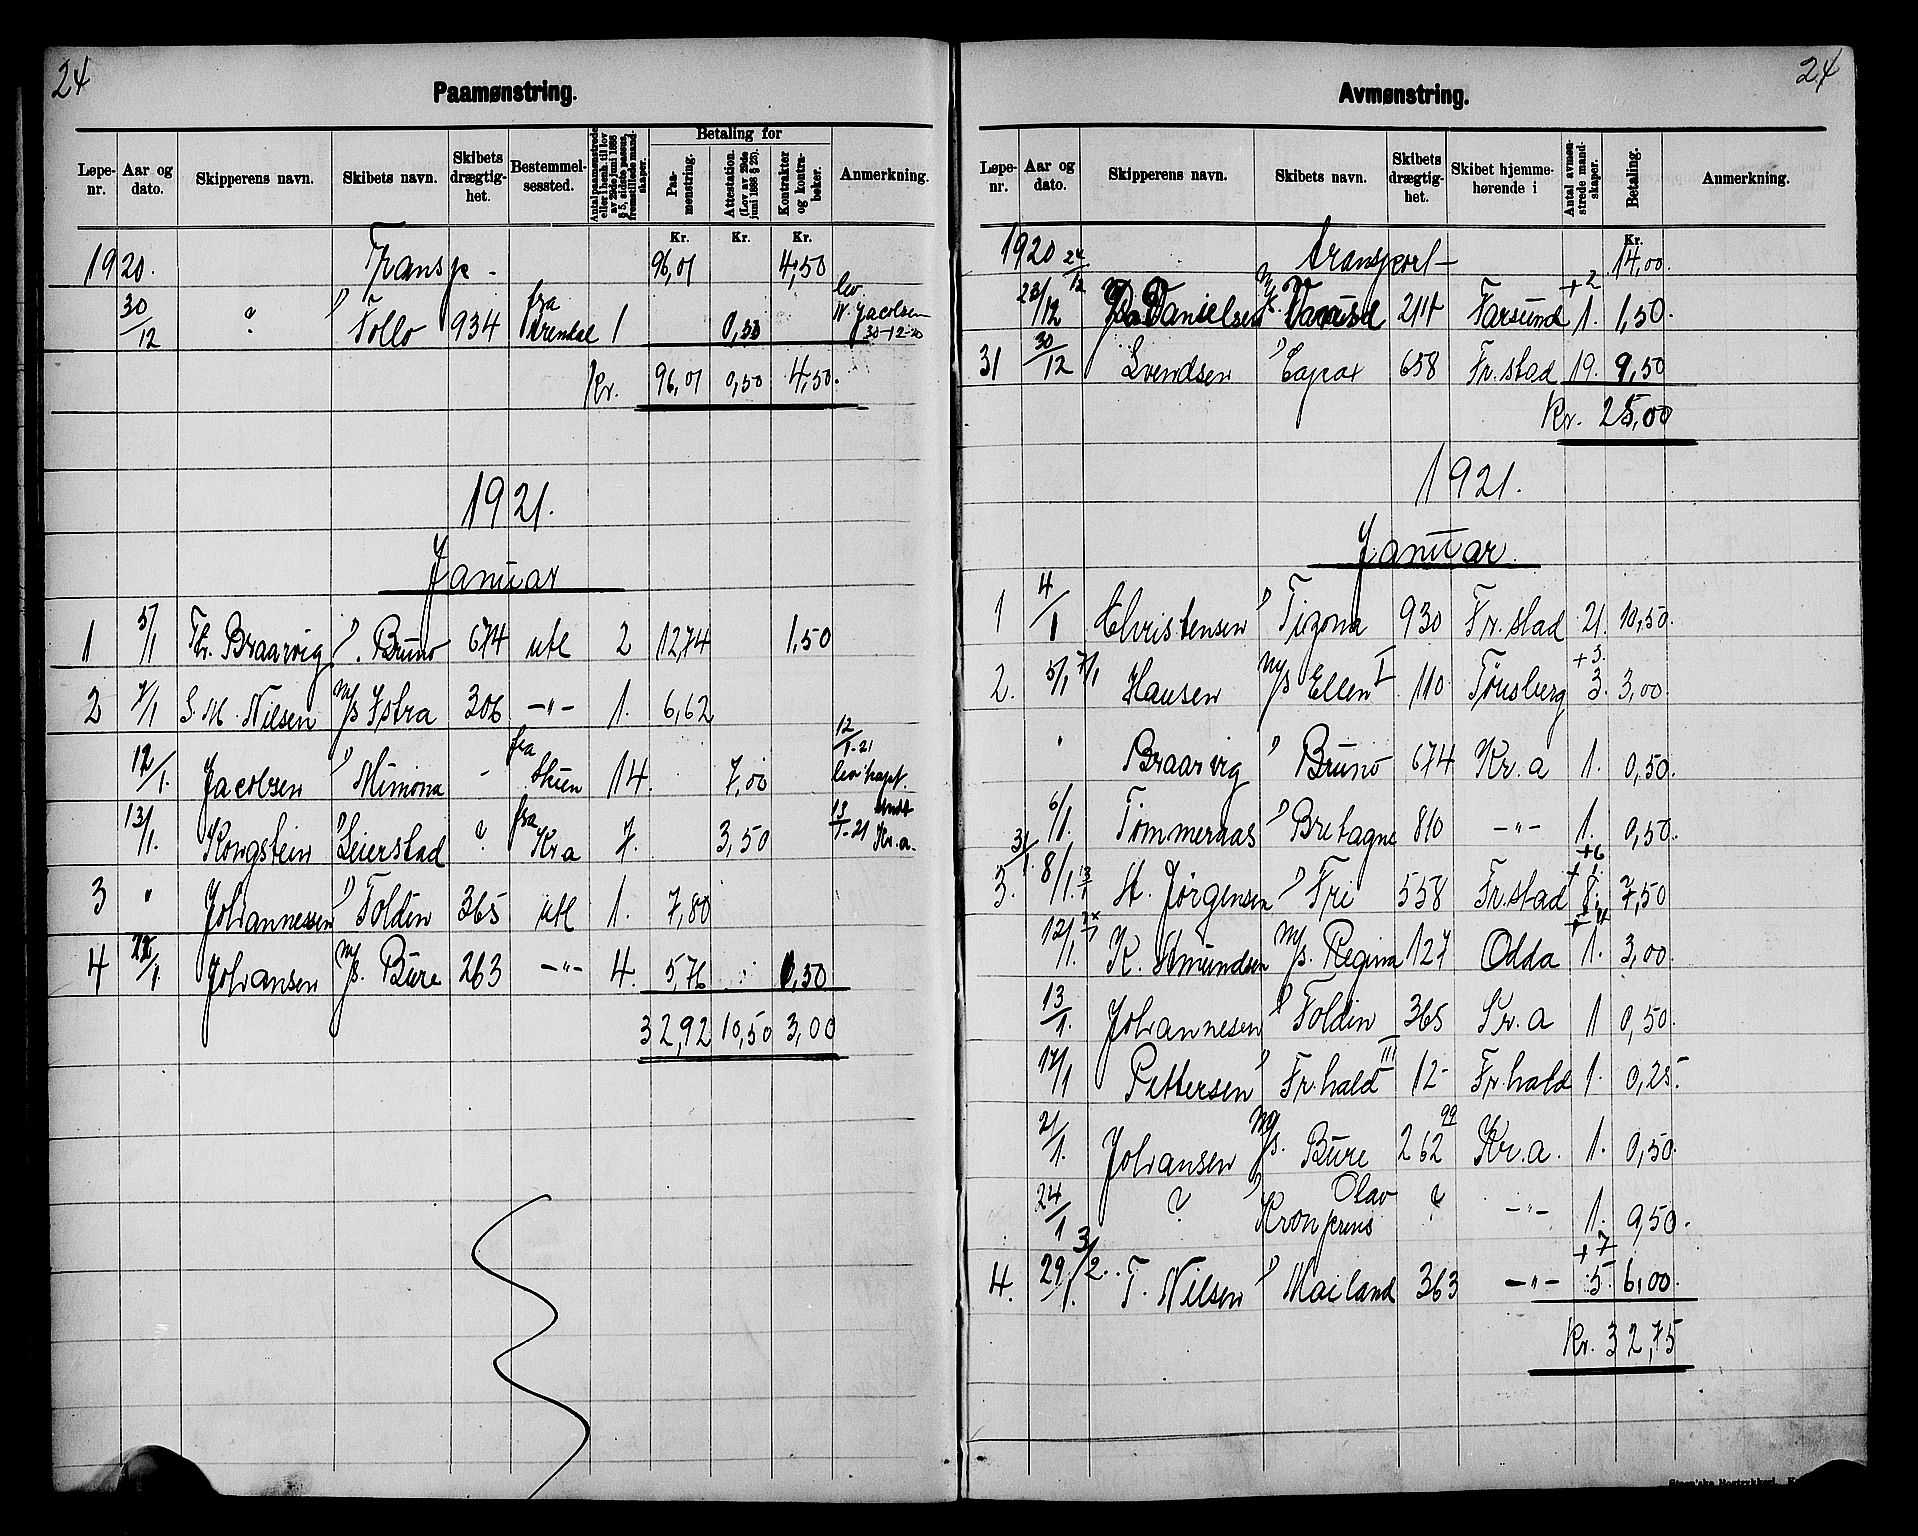 24
Paamønstring.
Løpe-nr. Aar og dato. Skipperens navn. Skibets navn. Skibets drægtig-het. Bestemmel-sessted. Antal paamønstrede eller i henh. til lov av 29de juni 1888 § 5, sidste passus, fremstillede mand-skaper. Betaling for Paa-mønstring. Attestation. (Lov av 29de juni 1888 § 23). Kontrakter og kontra-bøker. Anmerkning.
Kr. Kr. Kr.
1920. Transp. 96,01 4,50
30/12 ? " Follo 934 fra Arendal 1 0,50 lev. W. Jacobsen 30-12-20
Kr. 96,01 0,50 4,50.
1921.
Januar
1 5/1 Th. Braarvig " Bruno 674 utl 2 12,74 1,50
2 7/1 S. M. Nilsen M/S Istra 306 -"- 1. 6,62
12/1. Jacobsen " Mimona - fra Skien 14. 7,00 12/1-21 lev kapt.
13/1. Kongstein " Leierstad ? fra Kr.a 7. 3,50 13/1-21 Kr.a.
3 " Johannessen " Foldin 365 utl 1. 7,80
4 22/1. Johansen M/S. Bure 263 -"- 4. 5,76 1,50
32,92 10,50 3,00
24
Avmønstring.
Løpe-nr. Aar og dato. Skipperens navn. Skibets navn. Skibets drægtig-het. Skibet hjemme-hørende i Antal avmøn-strede mand-skaper. Betaling. Anmerkning.
Kr.
1920 24/12 transport- 14,00.
28/12 Danielsen M/K. 214 Farsund +2 1. 1,50.
31 30/12 Svendsen " Capax 658 Fr.stad 19. 9,50
Kr. 25,00
1921.
Januar
1 4/1 Christensen " Tizona 930 Fr.stad 21. 10,50.
2. 5/1 7/1 Hansen M/S Ellen I 110 Tønsberg +3. 3. 3,00.
" Braarvig " Bruno 674 Kr.a 1. 0,50.
6/1. Tømmernæs " Bretagne 810 -"- 1. 0,50.
3. 31/1. 8/1. 13/1 A. Jørgensen " Fri 558 Fr.stad +6 8. 7,50
12/1. K. Amundsen M/S. Regina 127 Odda 1. 3,00.
13/1. Johannesen " Foldin 365 Kr.a 1 0,50.
17/1 Pettersen " Fr.hald III 12- Fr.hald 1. 0,25.
21/1. Johansen M/S. Bure 262 99 Kr.a. 1. 0,50.
24/1 ? " Kronprins Olav ? -"- 1. 9,50.
4. 29/1. 3/2. T. Nilsen " Mailand 363 -"- +7 5. 6,00.
Kr. 32,75